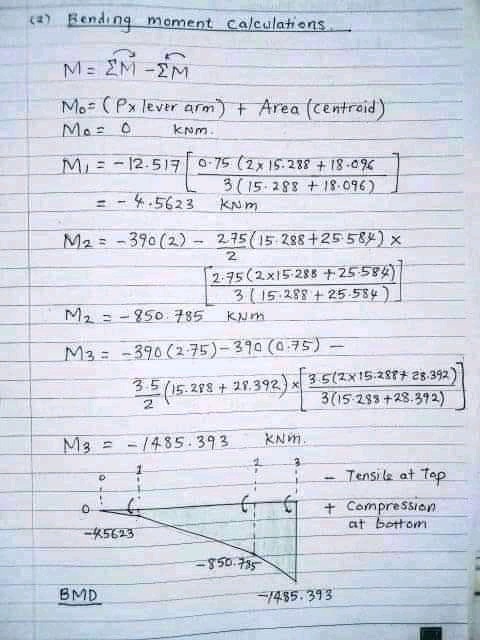 (2) Bending moment calculations.
M = ΣM - ΣM
M0 = (P x lever arm) + Area (centroid)
M0 = 0 KNm.
M1 = -12.517 [ 0.75 (2 x 15.288 + 18.096 ) / 3 (15.288 + 18.096) ]
= -4.5623 KNm
M2 = -390(2) - 2.75/2 (15.288 + 25.584) x
[ 2.75 (2x15.288 + 25.584) / 3 (15.288 + 25.584) ]
M2 = -850.785 KNm
M3 = -390 (2.75) - 390 (0.75) -
3.5/2 (15.288 + 28.392) x [ 3.5 (2x15.288 + 28.392) / 3(15.288 + 28.392) ]
M3 = -1485.393 KNm.
0 1 2 3
- Tensile at Top
0
+ Compression
at bottom
-4.5623
-850.785
BMD
-1485.393